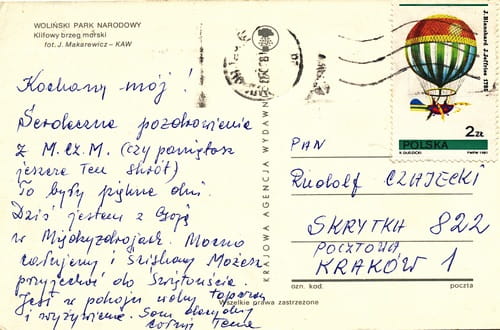 WOLIŃSKI PARK NARODOWY
Klifowy brzeg morski
fot. J. Makarewicz – KAW
Kochany mój!
Serdeczne pozdrowienia
z M.CZ.M. (czy pamiętasz
jeszcze Ten skrót)
To były piękne dni.
Dziś jestem z Gosią
w Międzyzdrojach. Mocno
całujemy i ściskamy Możesz
przyjechać do Świętouścia.
Jest w pokoju wolny tapczan
i wyżywienie.
KRAJOWA AGENCJA WYDAWN
J. Blanchard J. Jeffries 1785
2 ZŁ
POLSKA
PWPW 1981
PAN
Rudolf CZAJECKI
SKRYTKA 822
POCZTOWA
KRAKÓW 1
ozn. kod.
poczta
Wszelkie prawa zastrzeżone